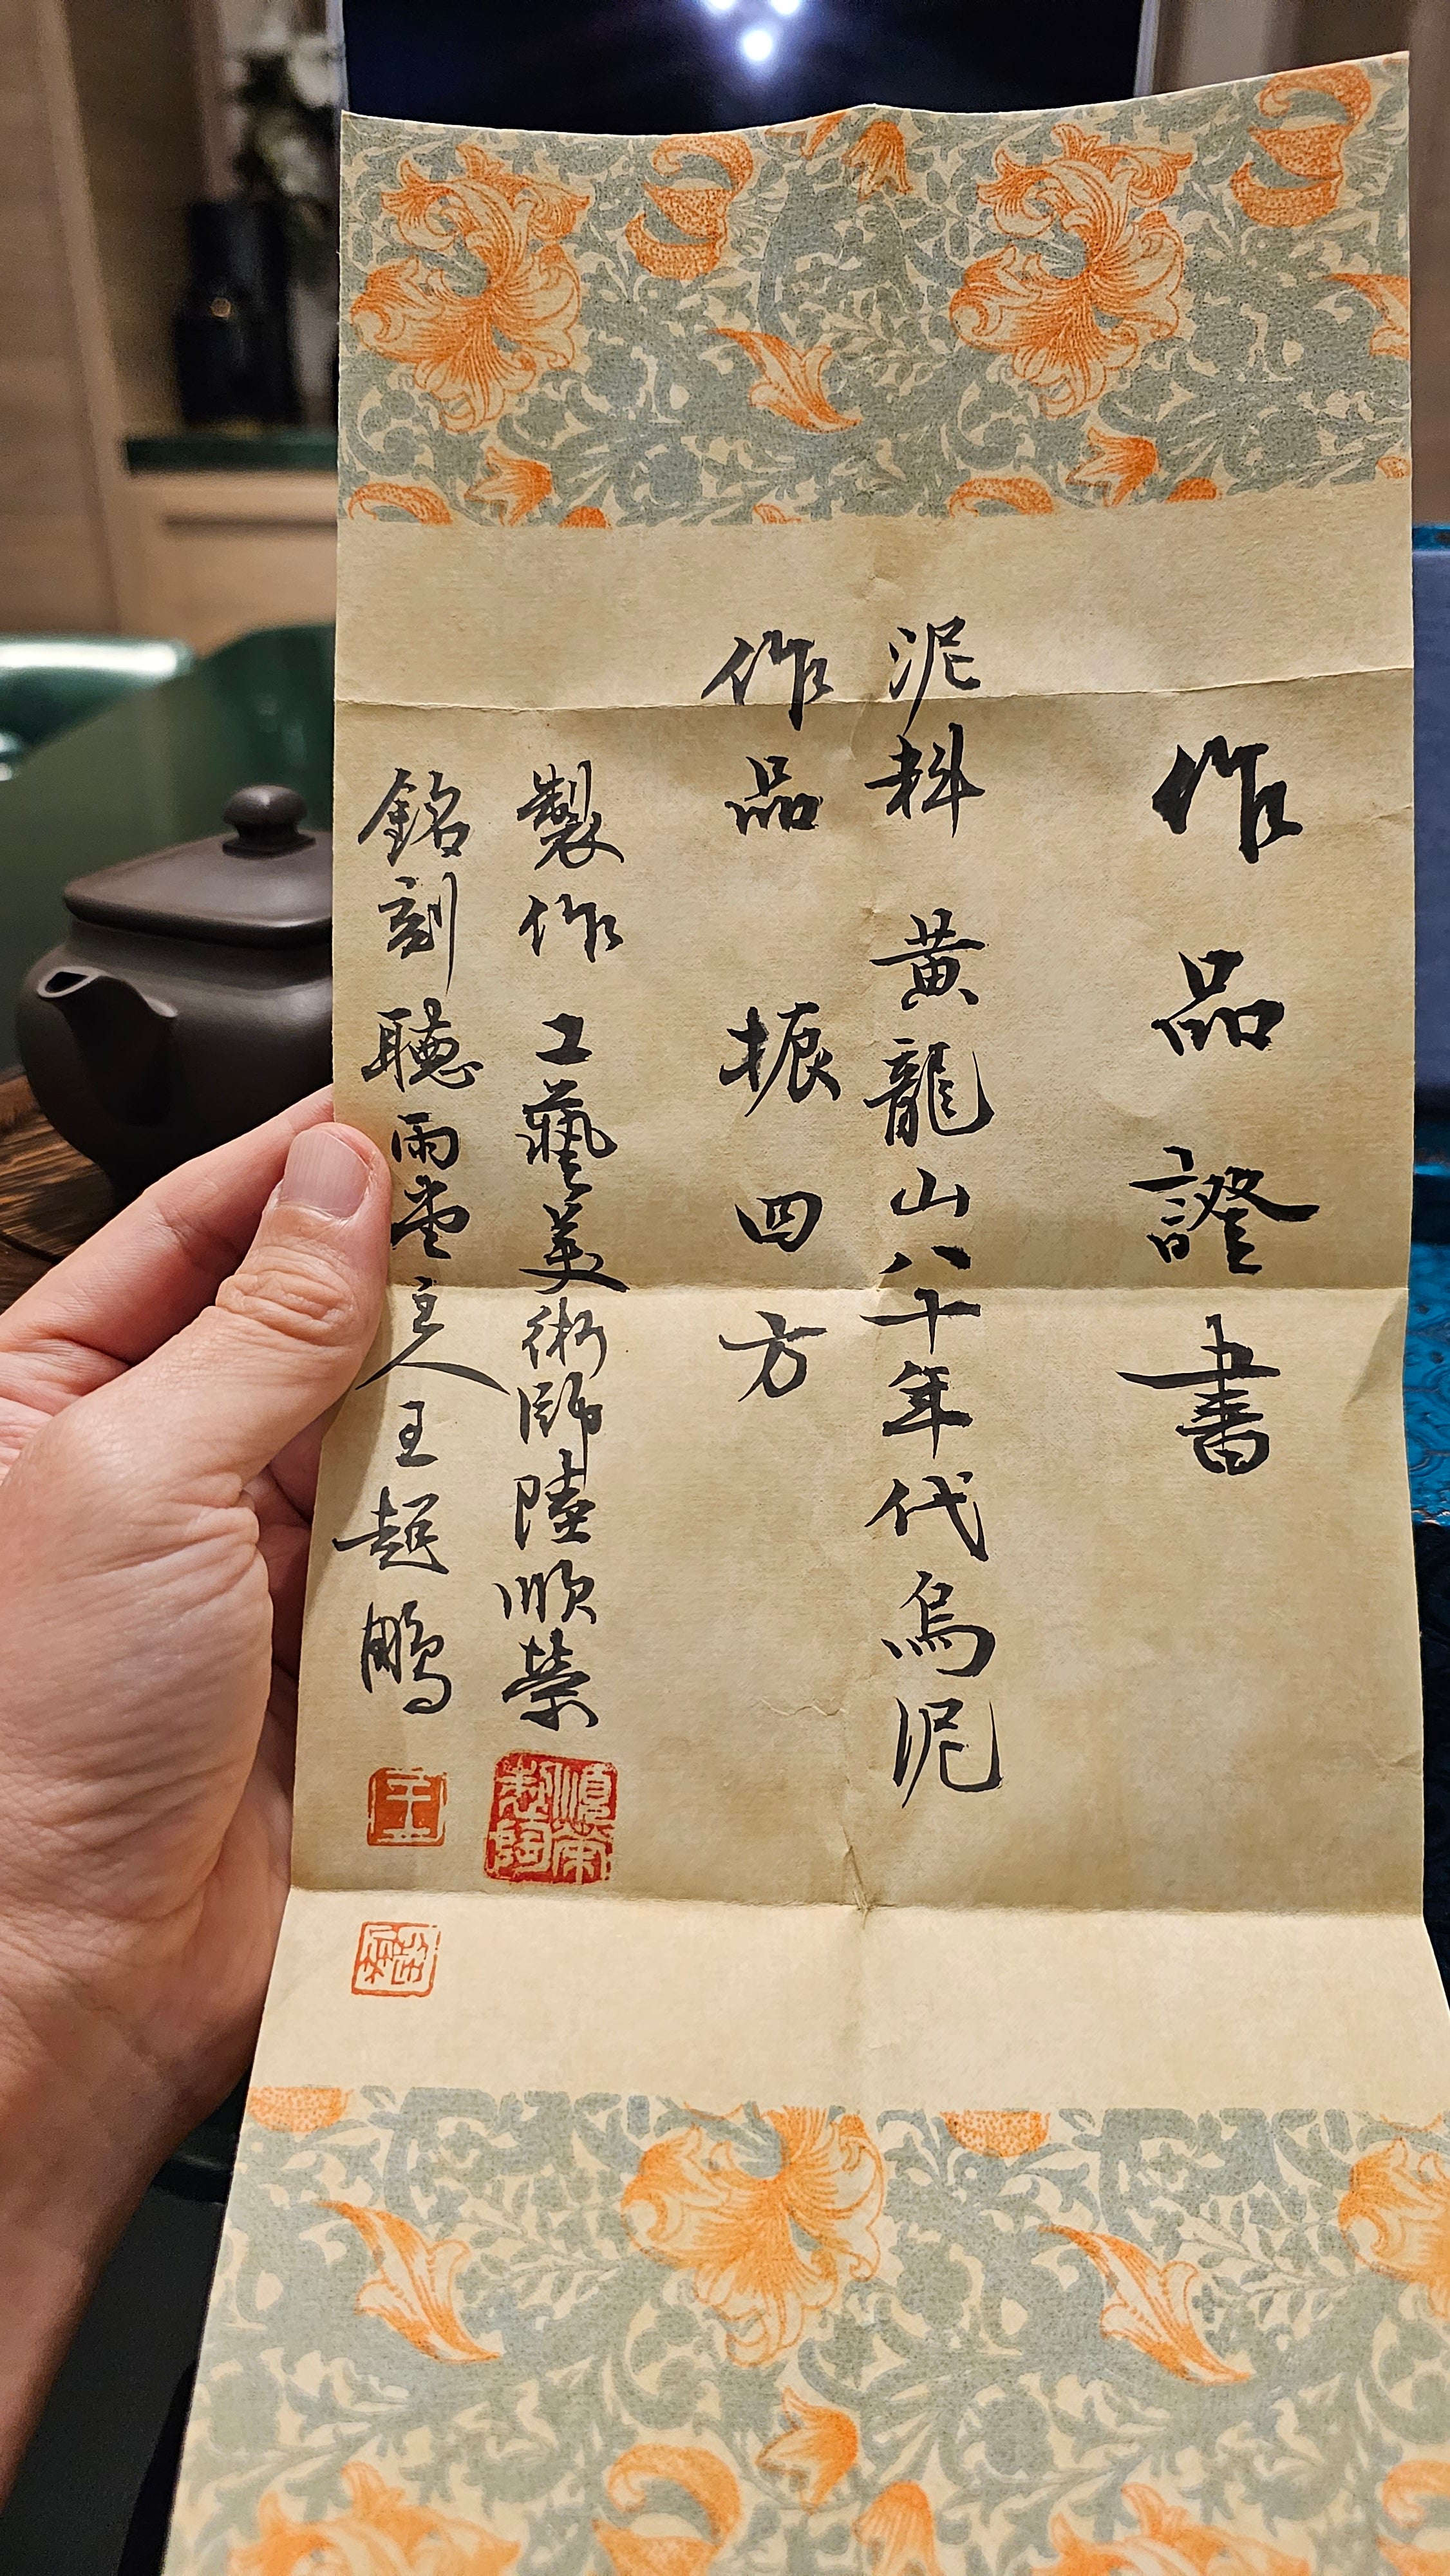 作品證書
泥料 黃龍山八十年代烏泥
作品 振四方
製作 工藝美術師陸順榮
銘刻 聽雨堂主人王超鵬
順榮製陶
王